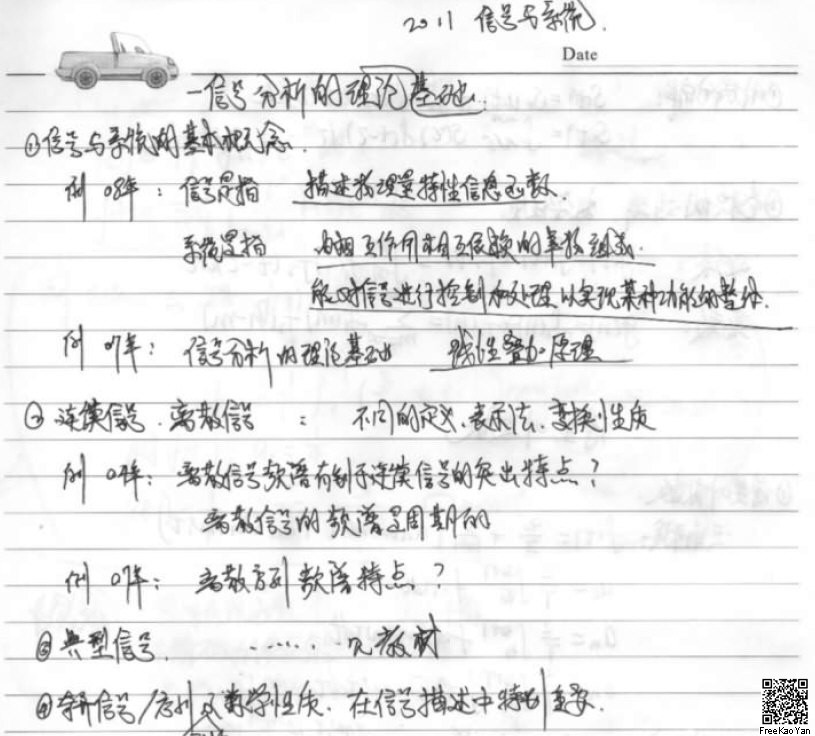 2011 信号与系统.
Date
一信号分析的理论基础.
①信号与系统的基本概念.
例 08年: 信号是指 描述物理量特性信息函数.
系统是指 由相互作用相互依赖的事物组成.
能对信号进行控制和处理以实现某种功能的整体.
例 07年: 信号分析的理论基础 线性叠加原理
② 连续信号.离散信号 : 不同的定义.表示法.变换.性质
例 07年: 离散信号频谱有别于连续信号的突出特点?
离散信号的频谱是周期的
例 07年: 离散序列频谱特点?
③ 典型信号. ...... 见教材
④奇异信号/序列及数学性质. 在信号描述中特别重要.
FreeKaoYan